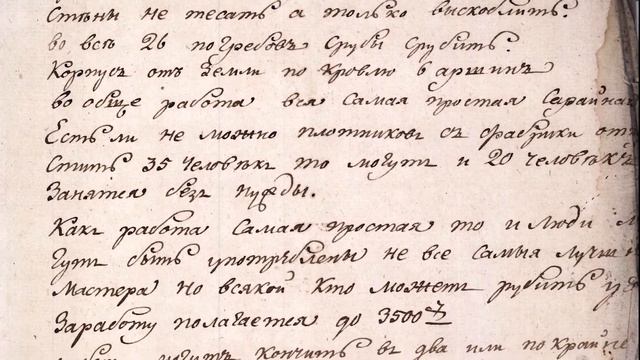 Стѣны не тесать а только выскоблить.
во всѣ 26 погребовъ срубы срубить.
Корпусъ отъ Земли по кровлю 6 аршинъ
во обще работа вся самая простая Сарайная
Есть ли не можно плотниковъ съ фабрики от
стить 35 человѣкъ то могутъ и 20 человѣкъ
Занятся безъ нужды.
Какъ работа самая простая то и люди м
гутъ быть употрѣблены не все самыя лучш
мастера но всякой кто можетъ рубить у
Заработу полагается до 3500
могутъ кончить въ два или по крайне